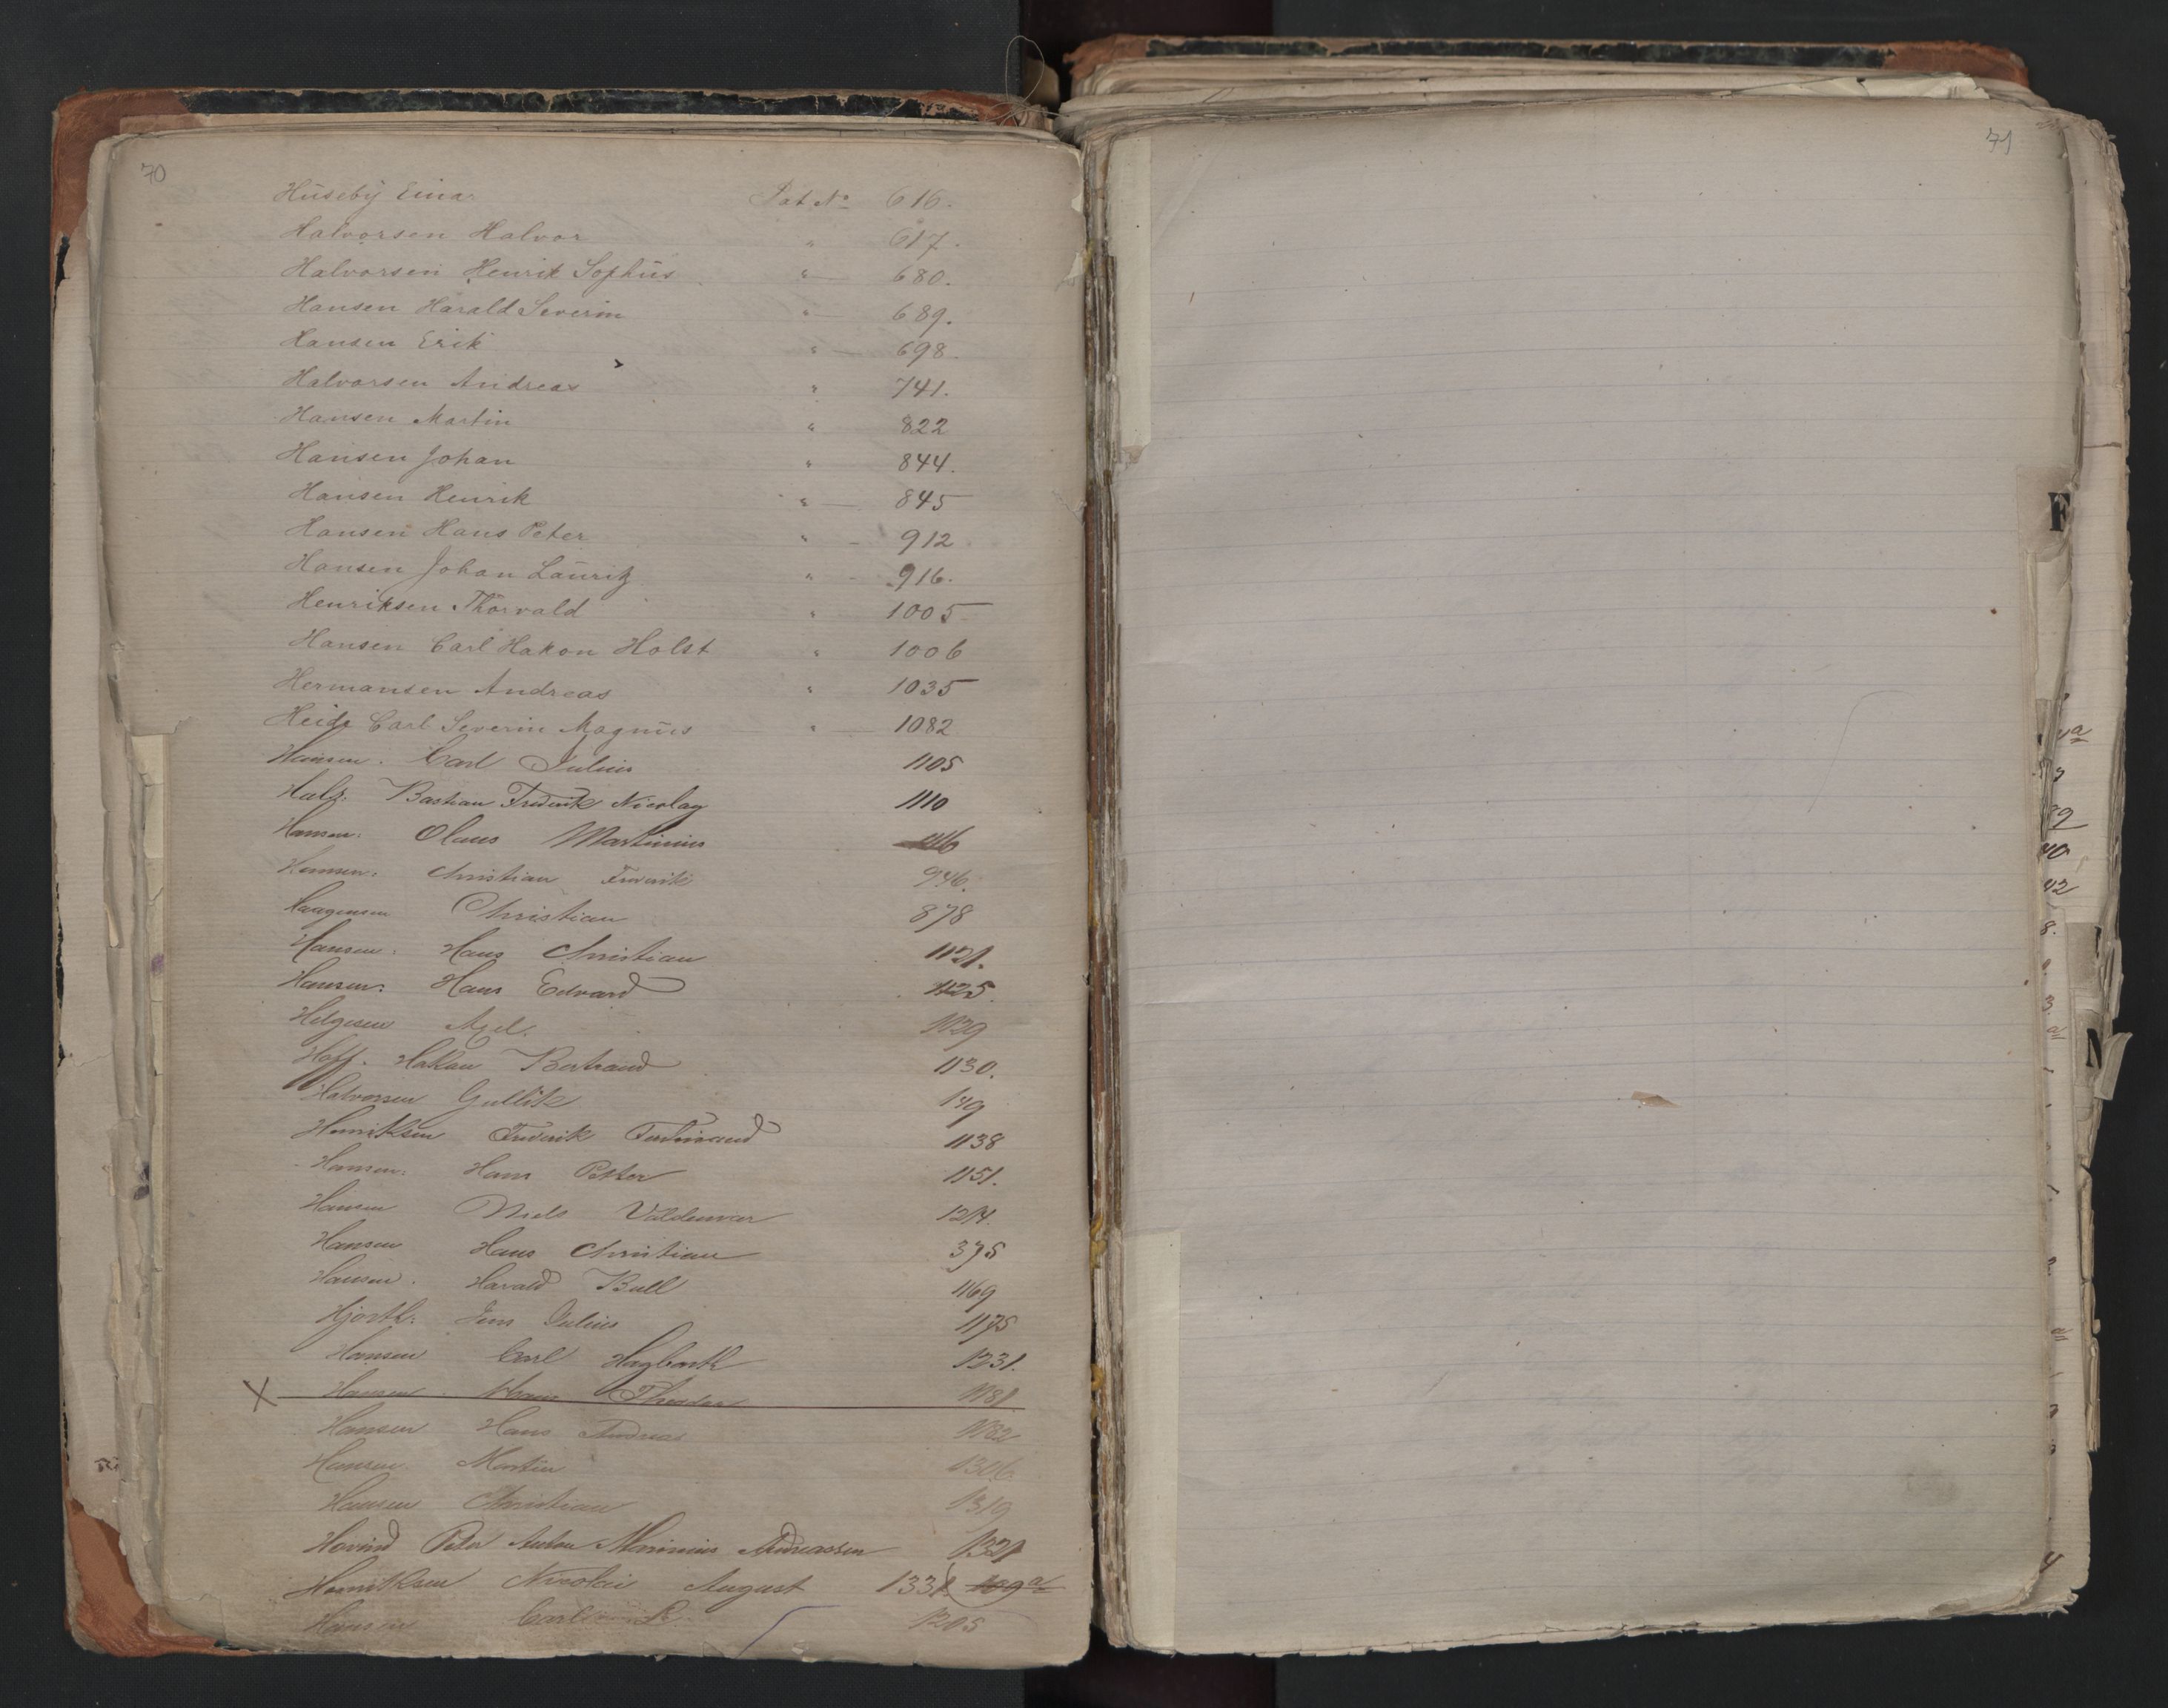 70
Hüsebÿ Einar Pat No 616.
Halvorsen Halvor " 617.
Halvorsen Henrik Sophüs " 680.
Hansen Harald Severin " 689.
Hansen Erik " 698
Halvorsen Andreas " 741.
Hansen Martin " 822
Hansen Johan " 844.
Hansen Henrik " 845
Hansen Hans Peter " 912
Hansen Johan Laüritz " 916.
Henriksen Thorvald " 1005
Hansen Carl Hakon Holst " 1006
Hermansen Andreas " 1035
Heide Carl Severin Magnüs " 1082
Hansen. Carl Julius 1105
Bastian Frederik Nicolay 1110
Hansen: Olaus Martinius
Hansen: Christian Frederik 946.
Haagensen Christian 878
Hansen: Hans Christian 1121.
Hansen: Hans Edvard 1125.
Helgesen Axel. 1129
Hoff. Hakan Bertrand 1130.
Halvorsen Gullik 149
Henriksen Frederik Ferdinand 1138
Hansen: Hans Petter 1151.
Hansen Niels Valdemar 1214.
Hansen Hans Christian 375
Hansen. Harald Bull 1169
Hjorth: Jens Julius 1175
Hansen Carl Hagbarth 1231.
X Hansen Theodor 1181
Hansen Hans Andreas 1182
Hansen. Martin 1306.
Hansen Christian 1319
Hovind Peter Anton Marinius Andreassen 1321
Henriksen Nicolai August 1331. 109a
Hansen Carl 1205
71
F
N